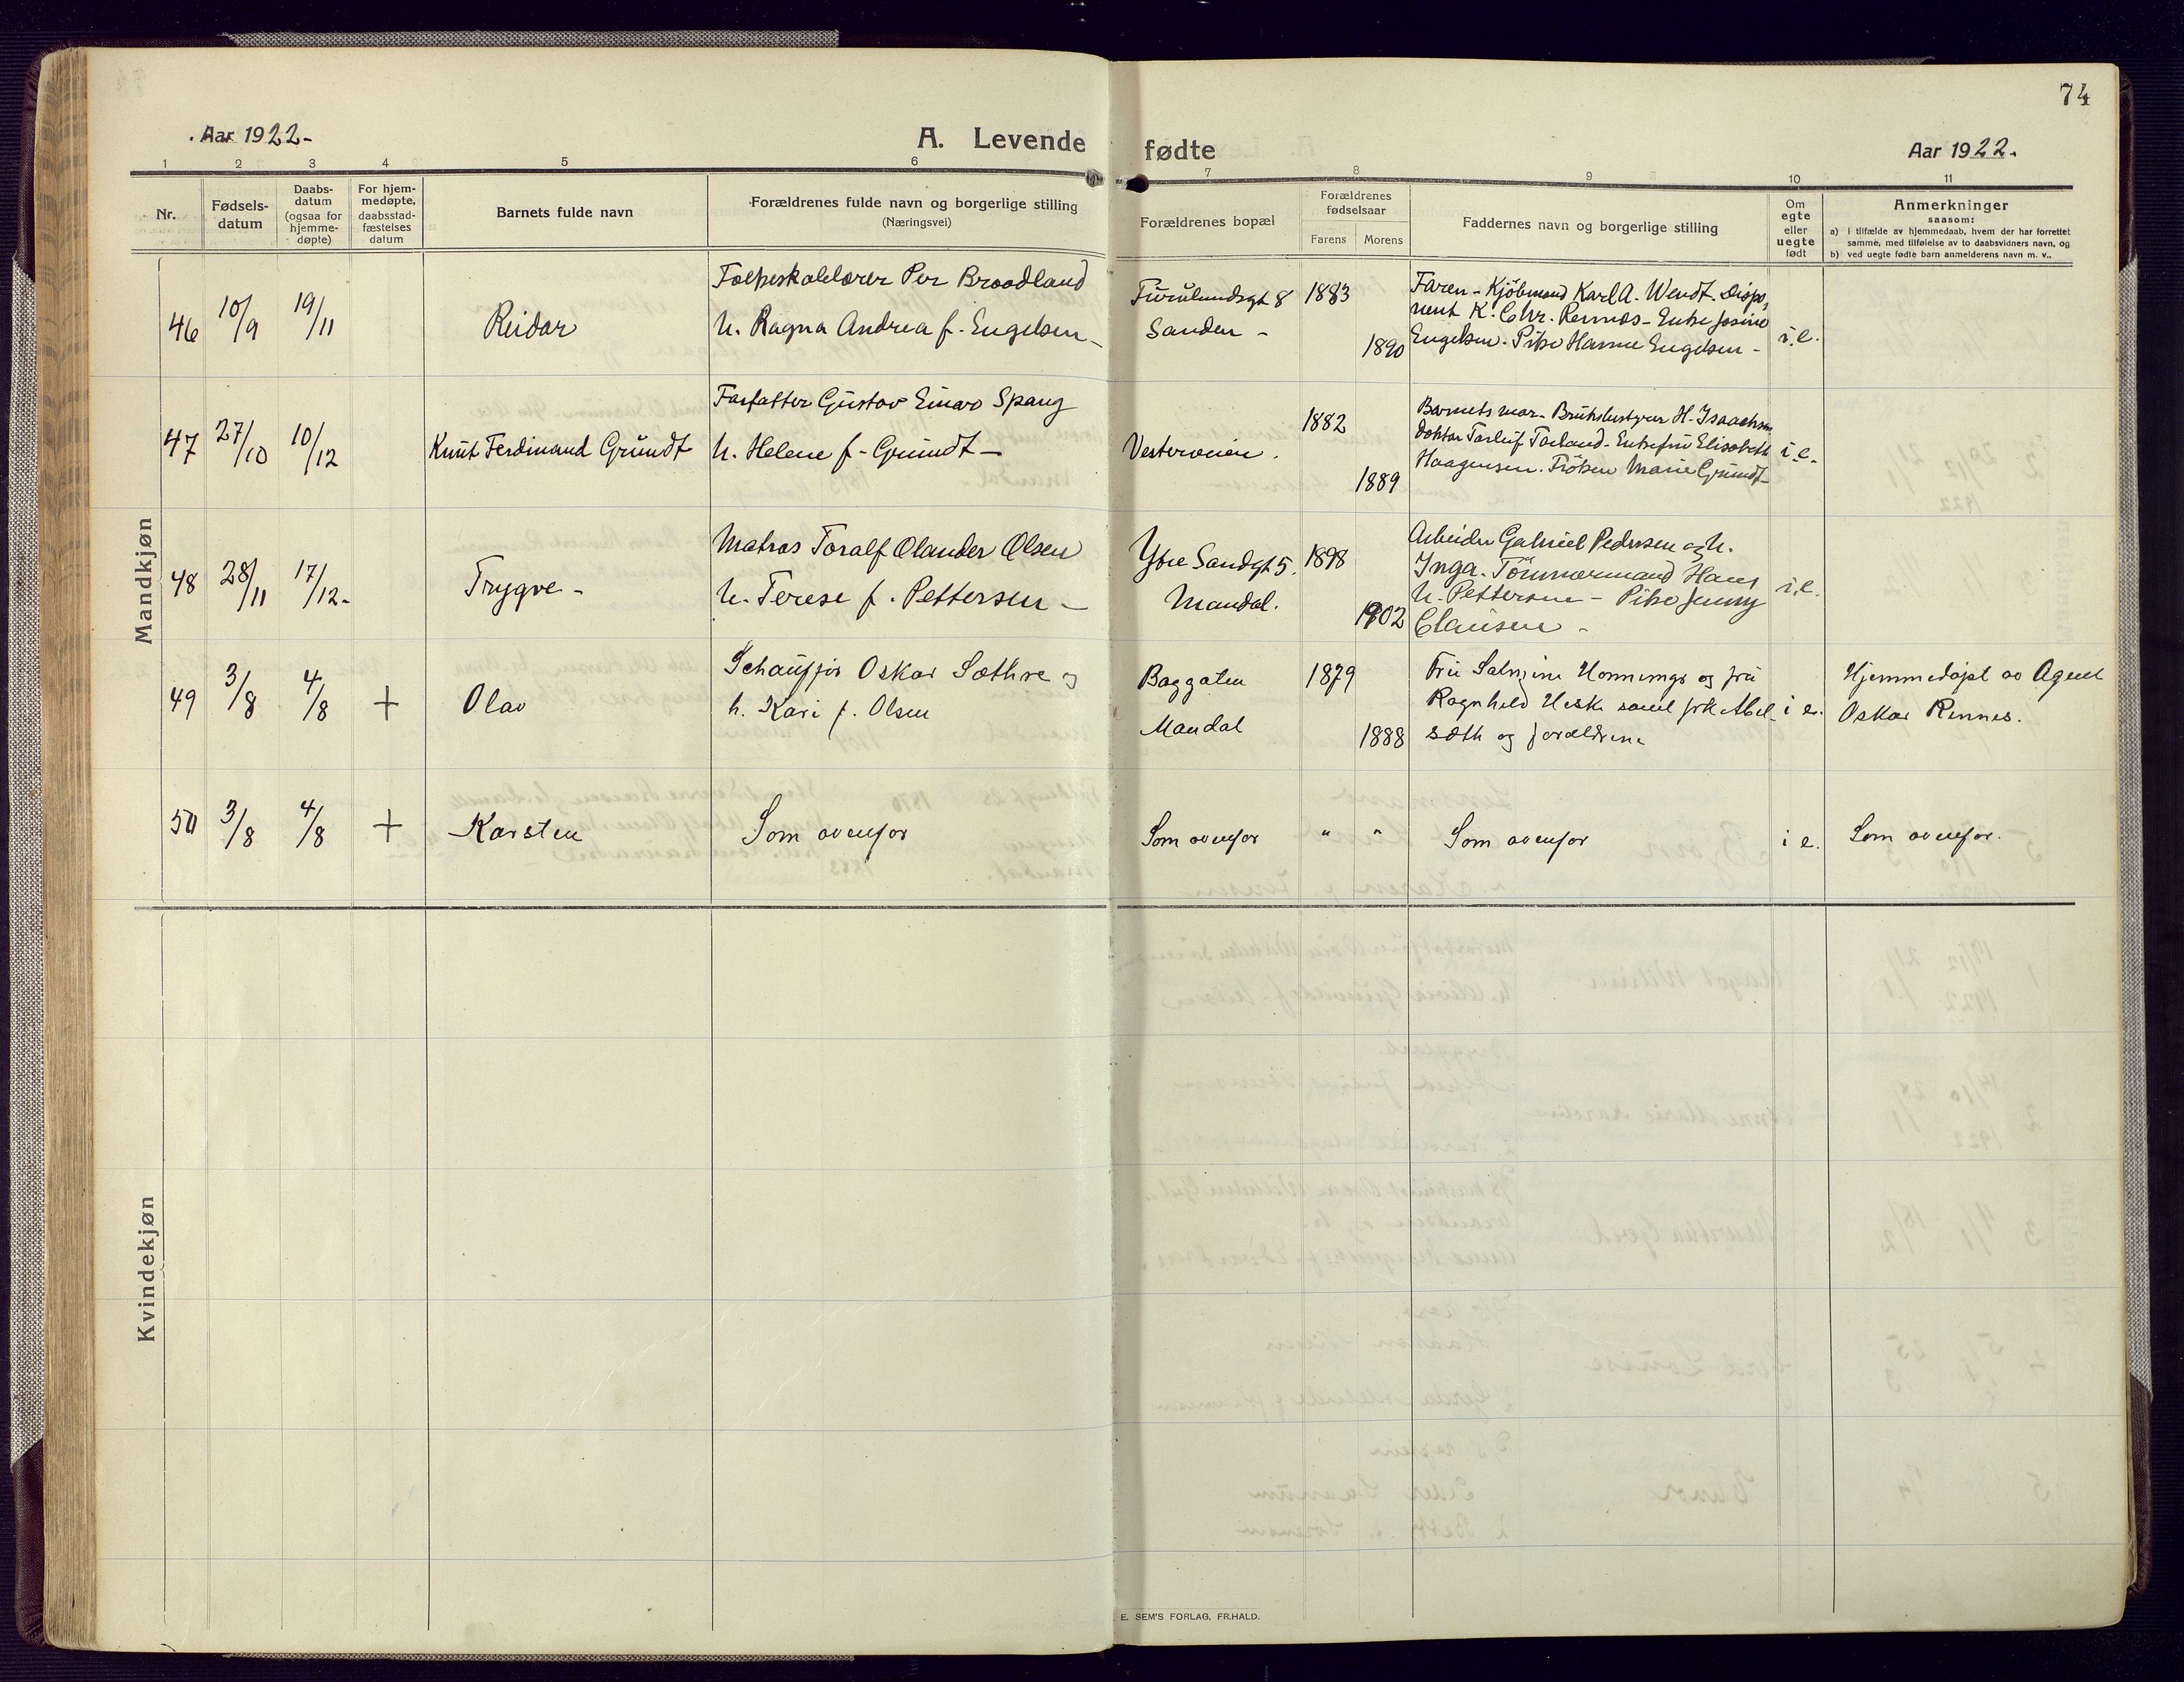 74
Aar 1922.-
A. Levende
fødte
Aar 1922.
1 2 3 4 5 6 7 8 9 10 11
Nr.
Fødsels-
datum
Daabs-
datum
(ogsaa for
hjemme-
døpte)
For hjem-
medøpte,
daabsstad-
fæstelses
datum
Barnets fulde navn
Forældrenes fulde navn og borgerlige stilling
(Næringsvei)
Forældrenes bopæl
Forældrenes
fødselsaar
Farens
Morens
Faddernes navn og borgerlige stilling
Om
egte
eller
uegte
født
Anmerkninger
saasom:
a) i tilfælde av hjemmedaab, hvem der har forrettet
samme, med tilføielse av to daabsvidners navn, og
b) ved uegte fødte barn anmelderens navn m. v..
Mandkjøn
46 10/9 19/11 Reidar
Per Braadland
h. Ragna Andrea f. Engelsen -
Furulundsgt 8
Sanden -
1883
1890
Faren - Kjöbmand Karl A. Wendt. Dispo-
nent K. Chr. Rennæs - Enke Josine
Engelsen. Pike Hanne Engelsen -
i. e.
47 27/10 10/12 Knut Ferdinand Grundt
Forfatter Gustav Einar Spang
h. Helene f. Grundt -
Vesterveien.
1882
1889
Barnets mor. Brukbestyrer H. Isaachsen
Doktor Torleif Torland. Enkefru Elisabeth
Haagensen. Fröken Marie Grundt -
i. e.
48 28/11 17/12. Trygve -
Matros Toralf Olander Olsen
h. Terese f. Pettersen -
Ytre Sandgt 5.
Mandal.
1898
1902
Arbeider Gabriel Pedersen og h.
Inga. Tömmermand Hans
h. Pettersen - Pike Jenny
Clausen -
i. e.
49 3/8 4/8 + Olav
Schauffør Oskar Sæthre og
h. Kari f. Olsen
Baggaten
Mandal
1879
1888
Fru Salmine og fru
Ragnhild samt frk Abel-
sæth og forældrene
i e.
Hjemmedøpt av Agent
Oskar Rennes.
50 3/8 4/8 + Karsten
Som ovenfor
Som ovenfor
" "
Som ovenfor
i e.
Som ovenfor.
Kvindekjøn
E. SEM'S FORLAG, FR.HALD.